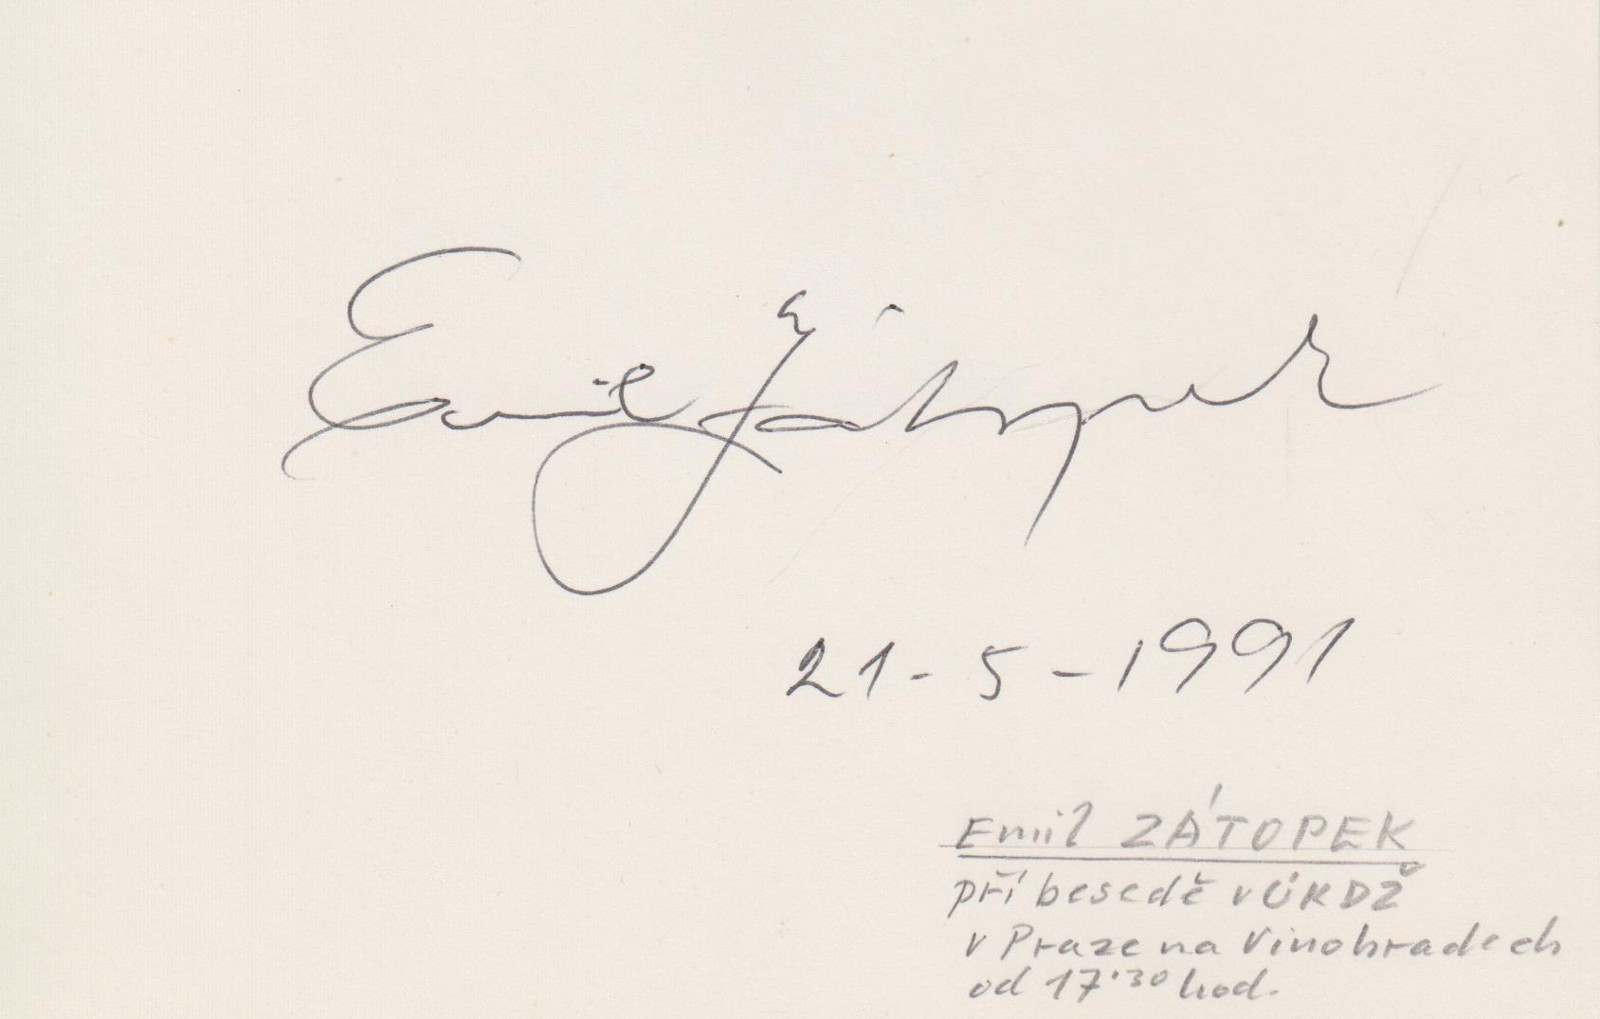 Emil Zátopek
21-5-1991
Emil ZÁTOPEK
při besedě v ÚKDŽ
v Praze na Vinohradech
od 17·30 hod.